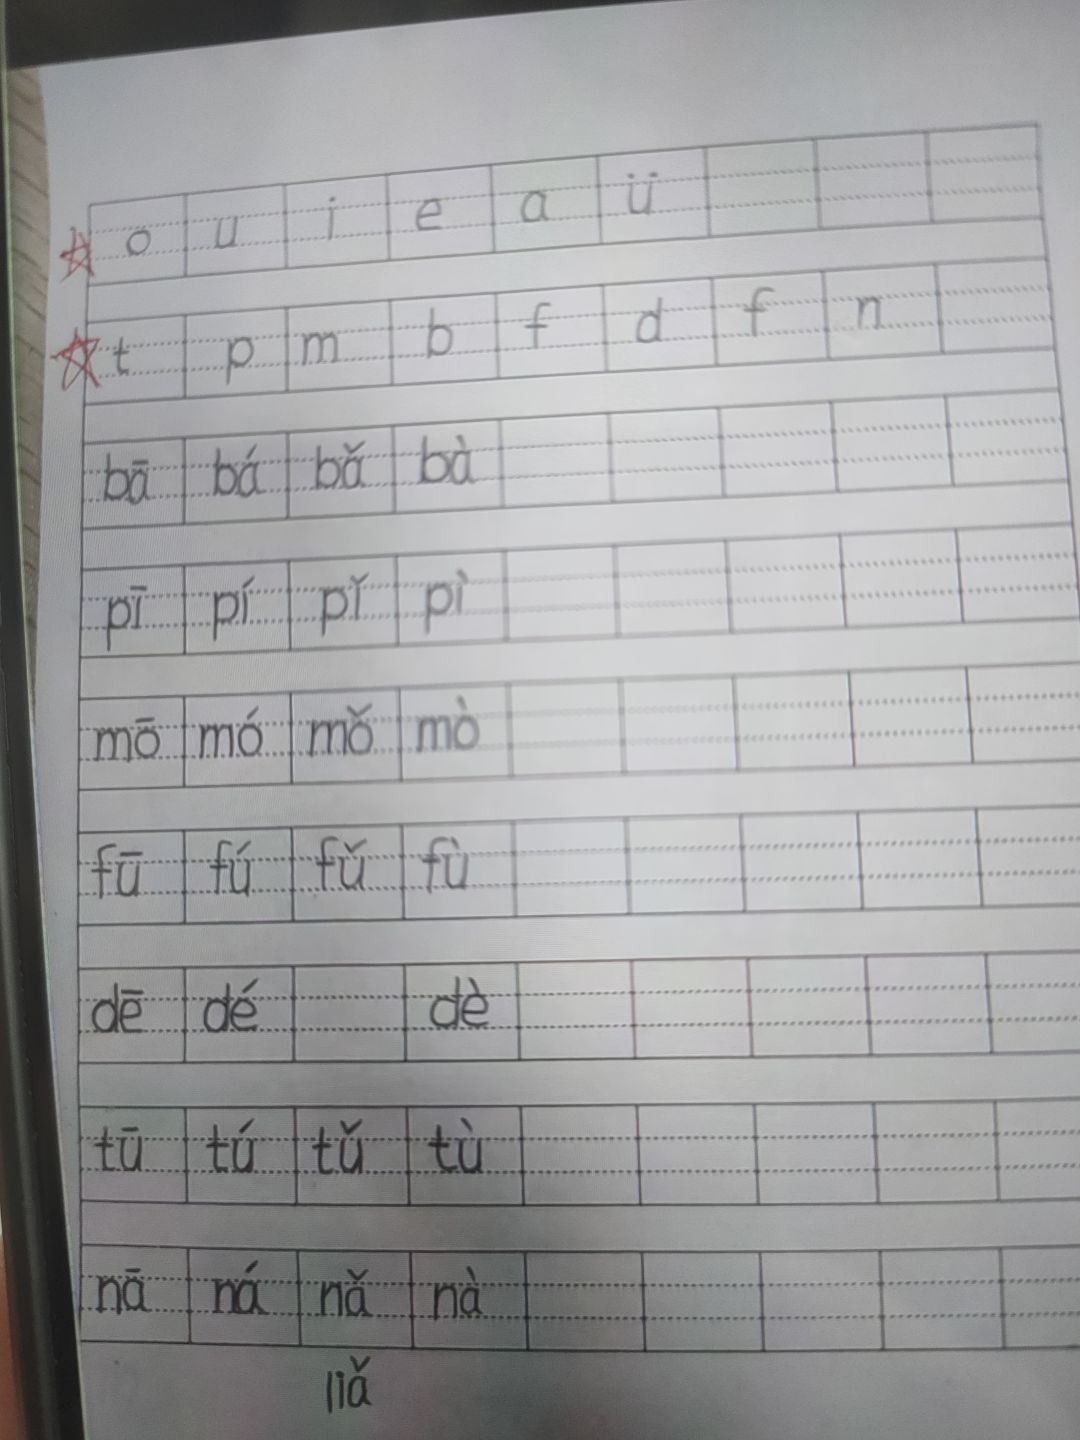 o u i e a ü
t p m b f d f n
bā bá bǎ bà
pī pí pǐ pì
mō mó mǒ mò
fū fú fǔ fù
dē dé dè
tū tú tǔ tù
nā ná nǎ nà
liǎ